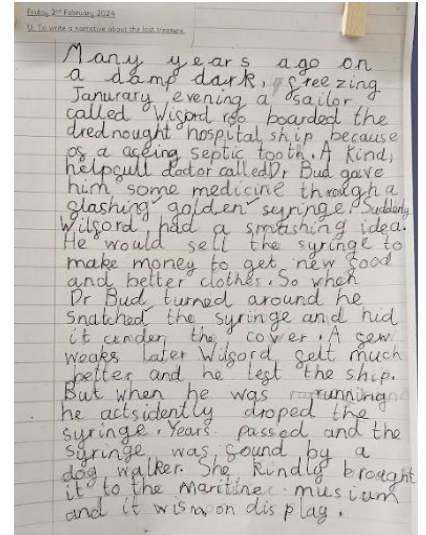 Friday 2nd February 2024
LI: To write a narrative about the lost treasure.
Many years ago on
a damp dark, freezing
Janurary evening a sailor
called Wilford boarded the
drednought hospital ship because
of a ageing septic tooth. A kind,
helpfull doctor called Dr Bud gave
him some medicine through a
flashing golden syringe. Suddenly
Wilford had a smashing idea.
He would sell the syringe to
make money to get new food
and better clothes. So when
Dr Bud turned around he
snatched the syringe and hid
it under the cover. A few
weaks later Wilford felt much
better and he left the ship.
But when he was running
he actsidently droped the
syringe. Years passed and the
syringe was found by a
dog walker. She kindly brought
it to the Maritime musium
and it is on display.